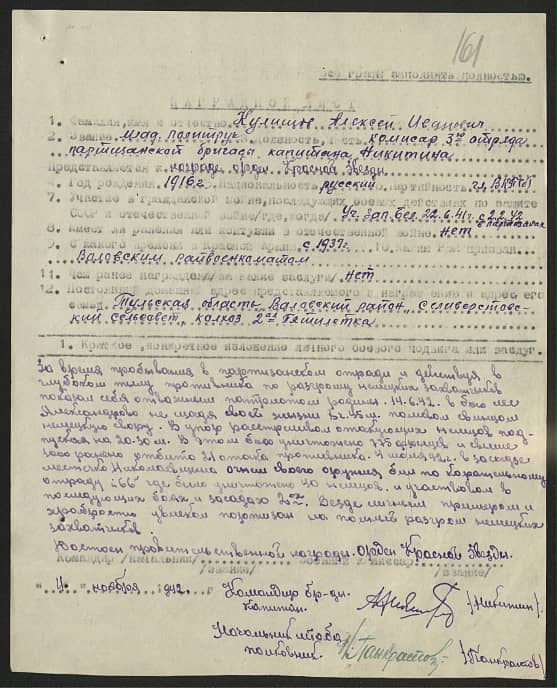 161
Все графы заполнять полностью.
НАГРАДНОЙ ЛИСТ
1. Фамилия, имя и отчество Кулишов Алексей Иванович
2. Звание млад. политрук должность, часть комисар 3го отряда
партизанской бригады капитана Никитина
Представляется к награде орден "Красной Звезды"
4. Год рождения 1916 г. национальность русский партийность чл. ВКП(б)
7. Участие в гражданской войне, последующих боевых действиях по защите
СССР и отечественной войне/где, когда/ Уч. Зап. Бел. 22.6.41г. с 2.2.42
в партизанах
8. Имеет ли ранения или контузии в отечественной войне Нет
9. С какого времени в Красной Армии с 1937г.
Воловским райвоенкоматом
11. Чем ранее награжден/за какие заслуги/ Нет
12. Постоянный домашний адрес представляемого к награждению и адрес его
семьи Тульская область, Воловский район, Селоверстов-
ский сельсовет, колхоз 2ая Пятилетка
1. Краткое, конкретное изложение личного боевого подвига или заслуг.
За время пребывания в партизанском отряде и действуя в
глубоком тылу противника по разгрому немецких захватчиков
показал себя отважным патриотом родины. 14.6.42. в бою мес
Александрово не щадя своей жизни поливал свинцом
немецкую свору. В упор расстреливал атакующих немцев под-
пуская на 20-30 м. В этом бою уничтожено 775 фрицев и свыше
1000 ранено отбита 21 атака противника. 4 июля 42 г. в засаде
местечко Николаевщина огнем своего оружия бил по карательному
отряду "66" где было уничтожено 30 немцев, и участвовал в
последующих боях и засадах 2х. Везде личным примером и
храбростью увлекал партизан на полный разгром немецких
захватчиков.
Достоин правительственной награды. Орден "Красной Звезды".
Командир /начальник/ военный комиссар
/звание/ /звание/
"4" ноября 1942 г. Командир бр-ды
капитан. /Никитин/.
Начальник штаба
полковник. Панкратов /Панкратов/